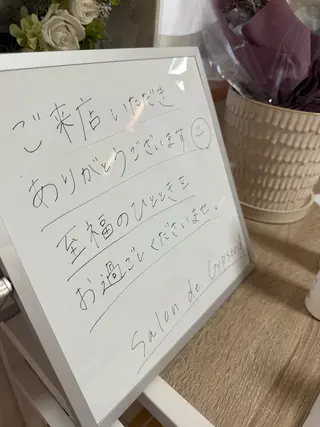 ご来店いただき
ありがとうございます
至福のひとときを
お過ごしくださいませ。
Salon de